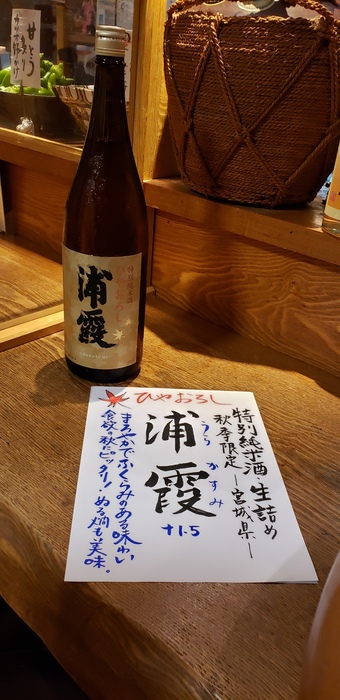 浦霞
特別純米酒
ひやおろし
特別純米酒・生詰め
秋季限定 ―宮城県―
浦霞
うら かすみ
+1.5
まろやかでふくらみのある味わい
食欲の秋にピッタリ!ぬる燗も美味。